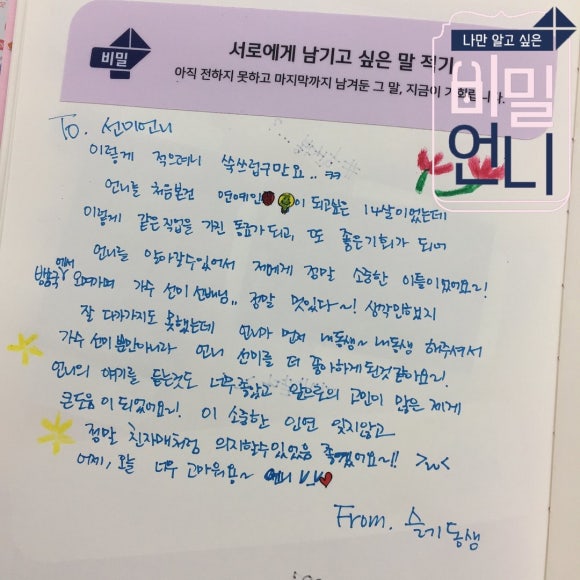 비밀
서로에게 남기고 싶은 말 적기
아직 전하지 못하고 마지막까지 남겨둔 그 말, 지금이 기회랍니다.
나만 알고 싶은
비밀
언니
To. 선미언니
이렇게 적으려니 쑥쓰럽구만요..ㅋㅋ
언니를 처음본건 연예인이 되고싶은 14살이었는데
이렇게 같은직업을 가진 동료가 되고, 또 좋은기회가 되어
언니를 알아갈수있어서 저에게 정말 소중한 이틀이었어요~!
방송국에서 오며가며 가수 선미 선배님.. 정말 멋있다~! 생각만하였지
잘 다가가지도 못했는데 언니가 먼저 내동생~ 내동생 해주셔서
가수 선미뿐만아니라 언니 선미를 더 좋아하게 된것같아요~!
언니의 얘기를 듣는것도 너무좋았고 앞으로의 고민이 많은 저에게
큰도움이 되었어요~! 이 소중한 인연 잊지않고
정말 친자매처럼 의지할수있었음 좋겠어요~!! >w<
어제, 오늘 너무 고마워용~ 언니
From. 슬기동생